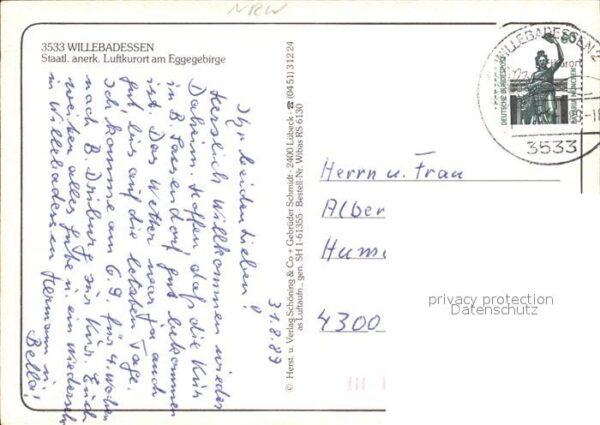 NRW
3533 WILLEBADESSEN
Staatl. anerk. Luftkurort am Eggegebirge
Ihr beiden Lieben!
Herzlich Willkommen wieder
Daheim. Hoffen, daß die Kur
in B. gut bekommen
ist. Das Wetter war ja auch
gut, bis auf die letzten Tage.
Ich komme am 6.9. für 4 Wochen
nach B. Driburg zur Kur. Euch
weiter alles Gute u. ein Wiedersehn
in Willebadessen Hermann u.
Bella!
31.8.89
© Herst. u. Verlag Schöning & Co + Gebrüder Schmidt · 2400 Lübeck · ☎ (04 51) 3 12 24
as Luftaufn., gen. SH 1-61355 · Bestell-Nr. Wibas RS 6130
WILLEBADESSEN 2
3533
80
DEUTSCHE BUNDESPOST
BAVARIA MÜNCHEN
Herrn u. Frau
Alber
Hum
4300
privacy protection
Datenschutz